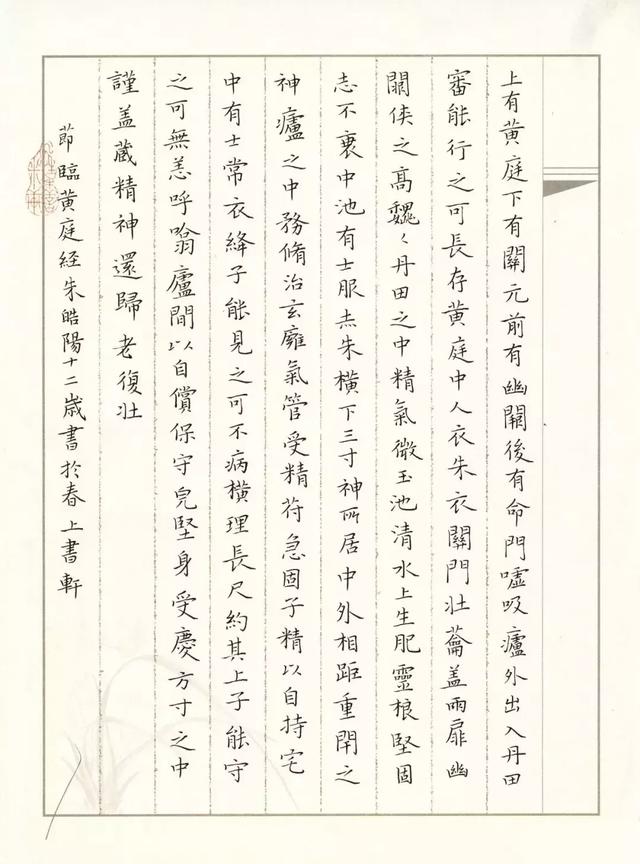 上有黄庭下有關元前有幽闕後有命門噓吸廬外出入丹田
審能行之可長存黄庭中人衣朱衣關門壯蘥盖兩扉幽
闕侠之髙巍〻丹田之中精氣微玉池清水上生肥靈根堅固
志不衰中池有士服赤朱横下三寸神所居中外相距重閉之
神廬之中務脩治玄廱氣管受精苻急固子精以自持宅
中有士常衣絳子能見之可不病横理長尺約其上子能守
之可無恙呼噏廬間以自償保守皃堅身受慶方寸之中
謹盖蔵精神還歸老復壯
莭臨黄庭经朱皓陽十二歳書於春上書軒